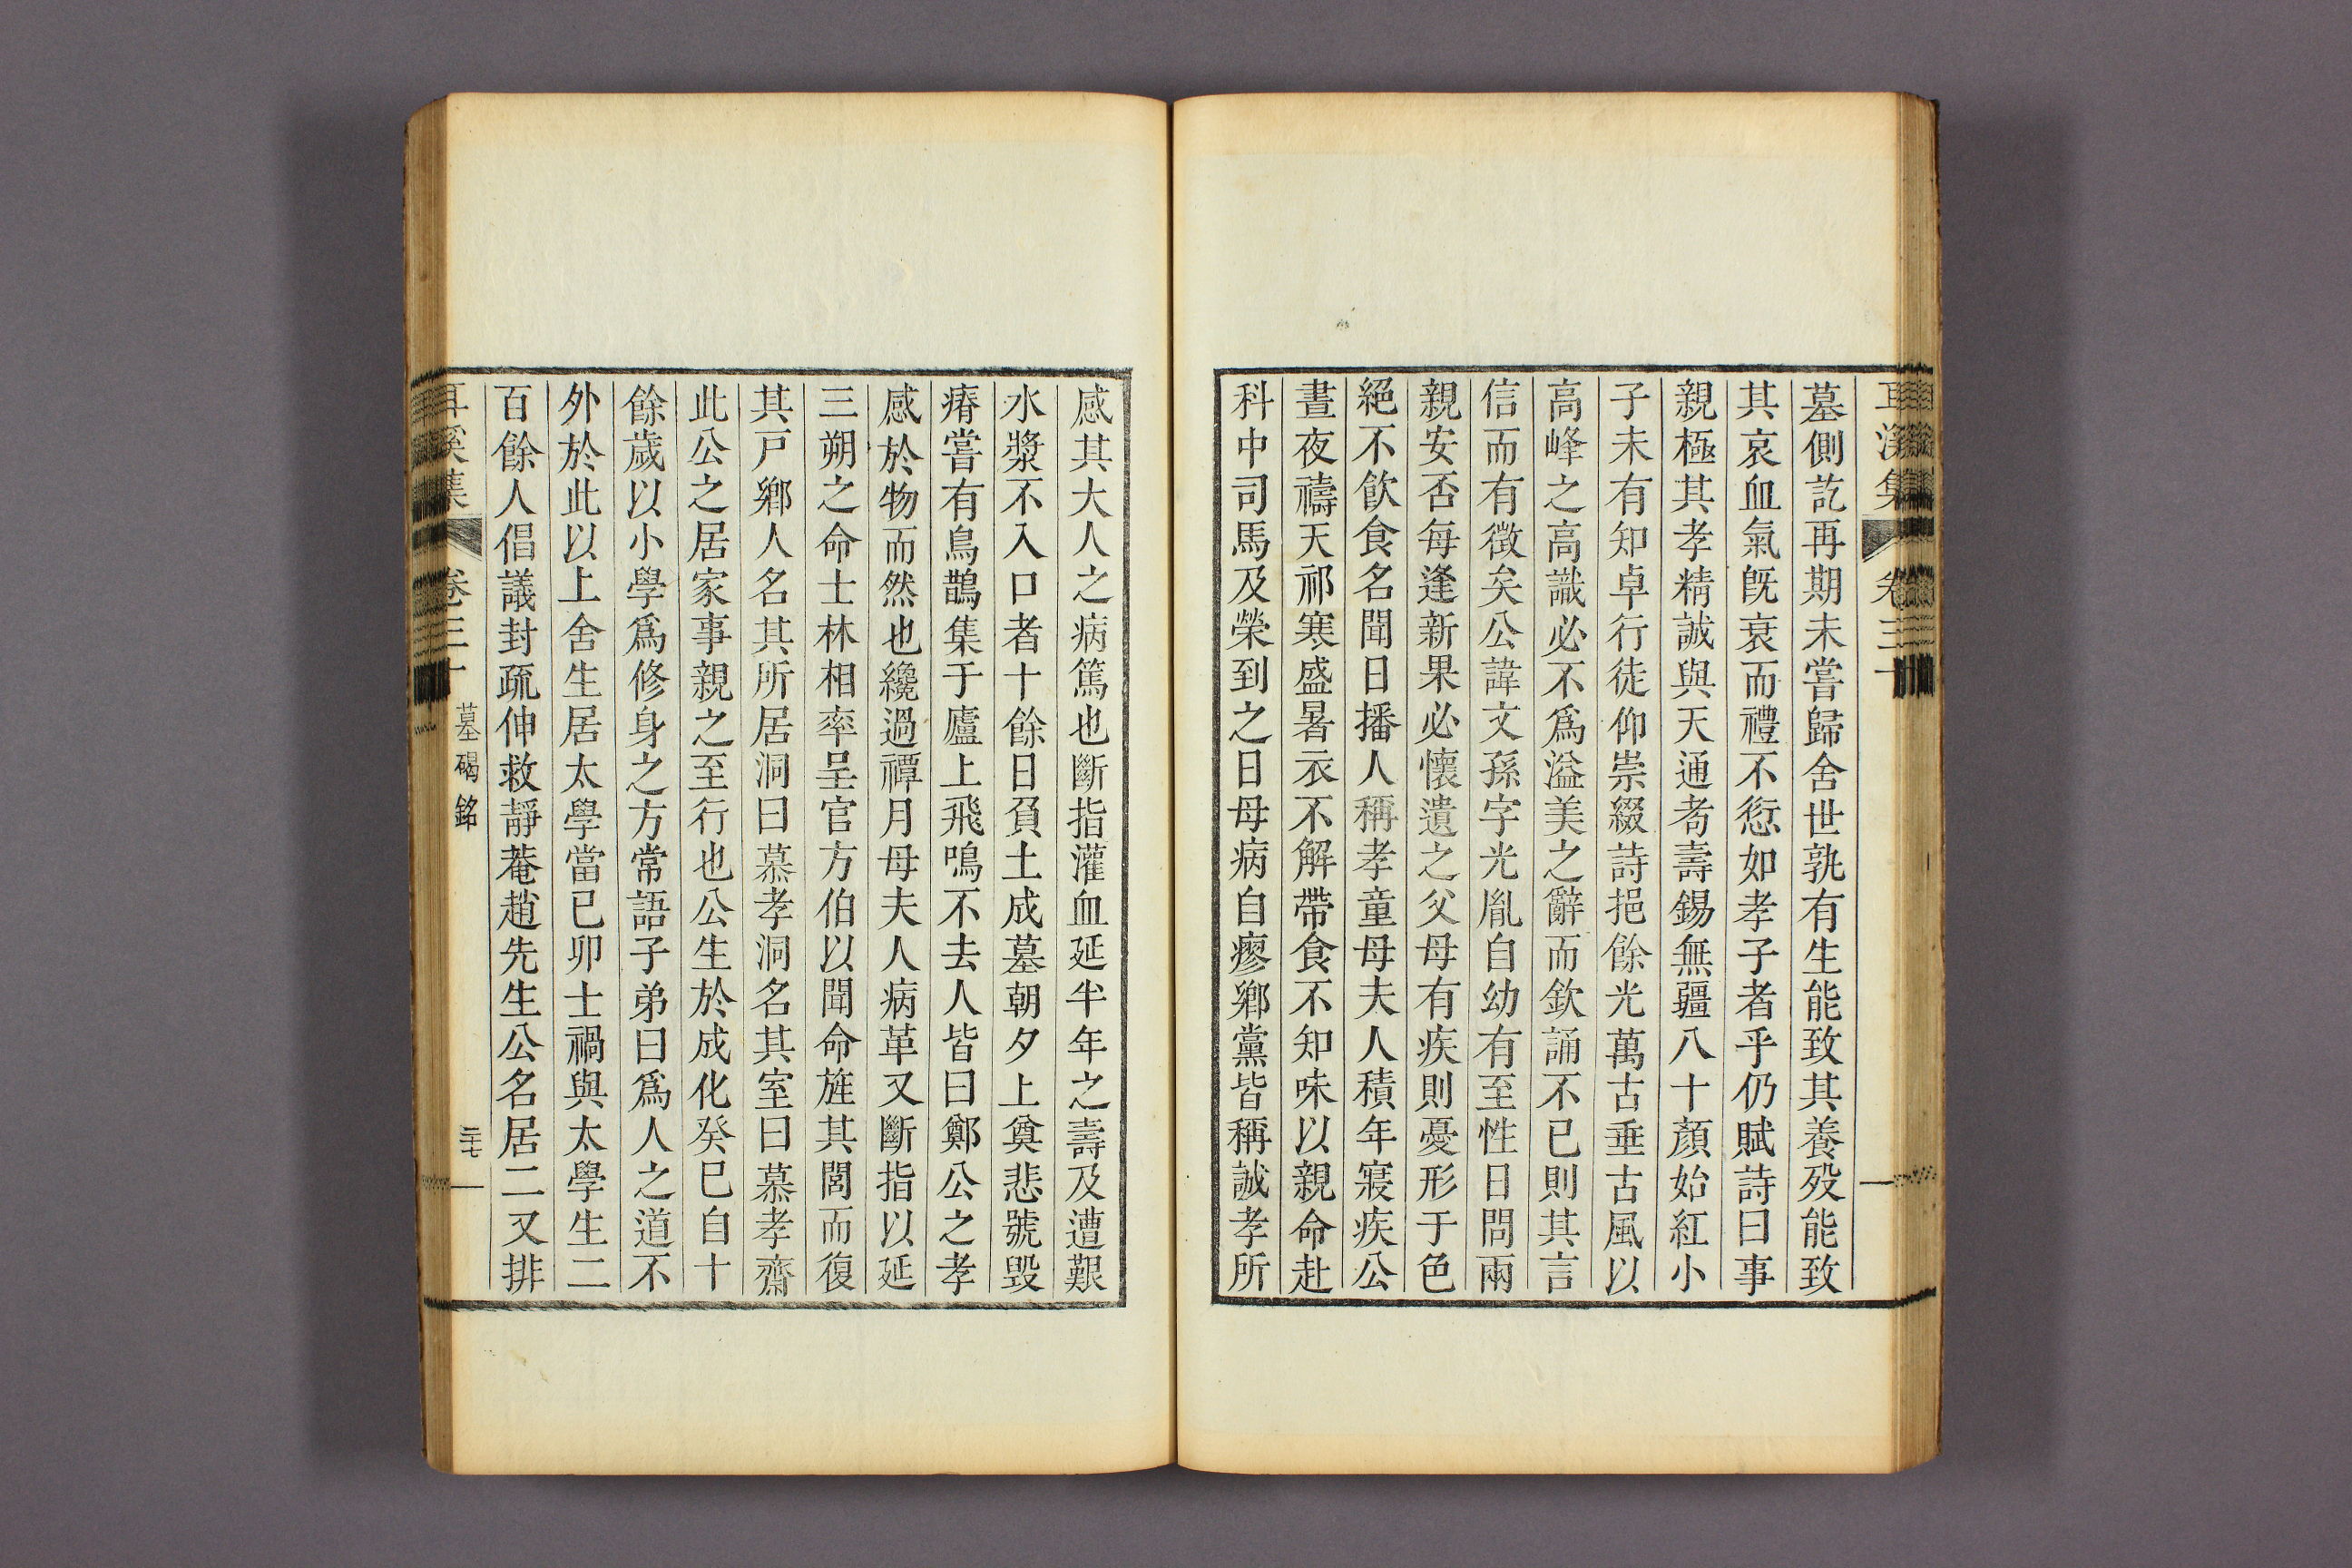 耳溪集 卷三十
墓側訖再期未嘗歸舍世孰有生能致其養歿能致
其哀血氣旣衰而禮不愆如孝子者乎仍賦詩曰事
親極其孝精誠與天通者壽錫無疆八十顏始紅小
子未有知卓行徒仰崇綴詩挹餘光萬古垂古風以
高峰之高識必不爲溢美之辭而欽誦不已則其言
信而有徵矣公諱文孫字光胤自幼有至性日問兩
親安否每逢新果必懷遺之父母有疾則憂形于色
絕不飮食名聞日播人稱孝童母夫人積年寢疾公
晝夜禱天祁寒盛暑衣不解帶食不知味以親命赴
科中司馬及榮到之日母病自瘳鄕黨皆稱誠孝所
感其大人之病篤也斷指灌血延半年之壽及遭艱
水漿不入口者十餘日負土成墓朝夕上奠悲號毀
瘠嘗有鳥鵲集于廬上飛鳴不去人皆曰鄭公之孝
感於物而然也纔過禫月母夫人病革又斷指以延
三朔之命士林相率呈官方伯以聞命旌其閭而復
其戶鄕人名其所居洞曰慕孝洞名其室曰慕孝齋
此公之居家事親之至行也公生於成化癸巳自十
餘歲以小學爲修身之方常語子弟曰爲人之道不
外於此以上舍生居太學當己卯士禍與太學生二
百餘人倡議封疏伸救靜菴趙先生公名居二又排
耳溪集 卷三十 墓碣銘 二十七